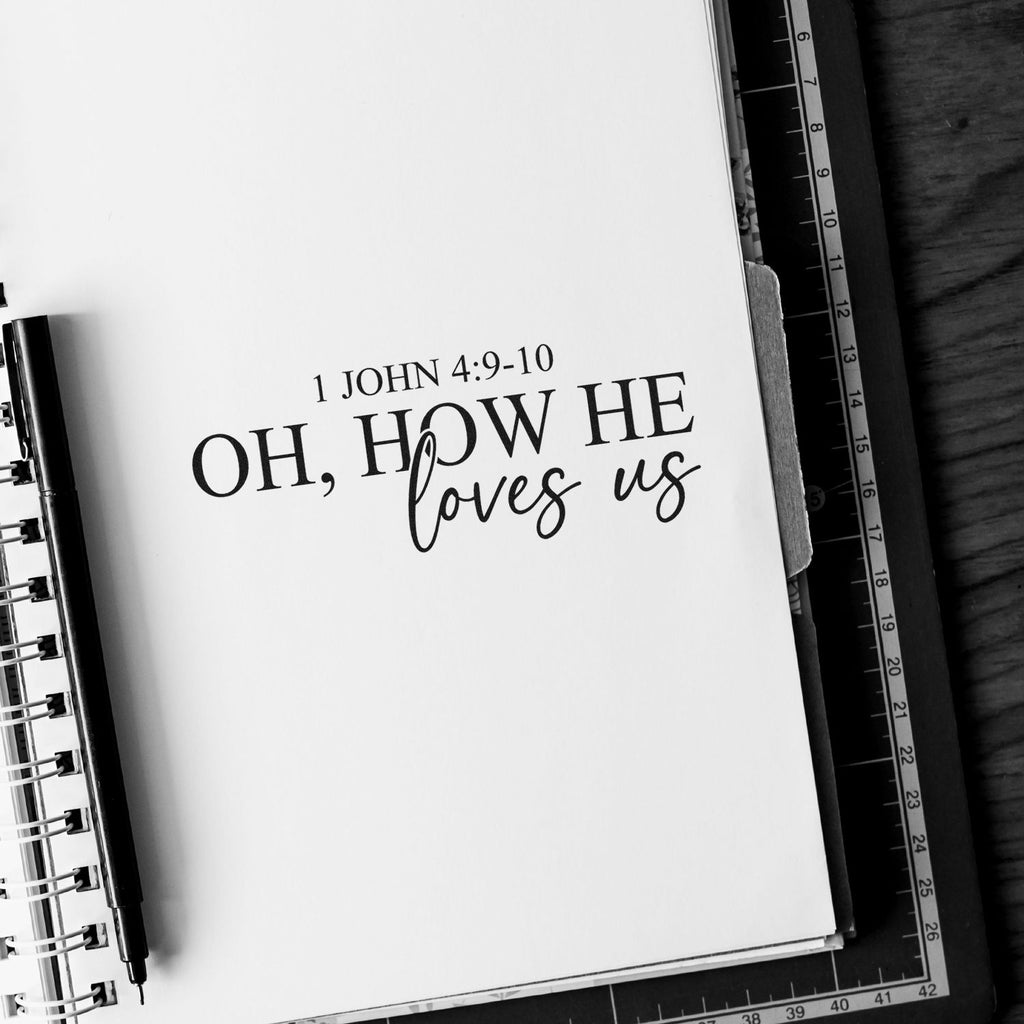 1 JOHN 4:9-10
OH, HOW HE
loves us
6
7
8
9
10
11
12
13
14
15
16
17
18
19
20
21
22
23
24
25
26
38
39
40
41
42